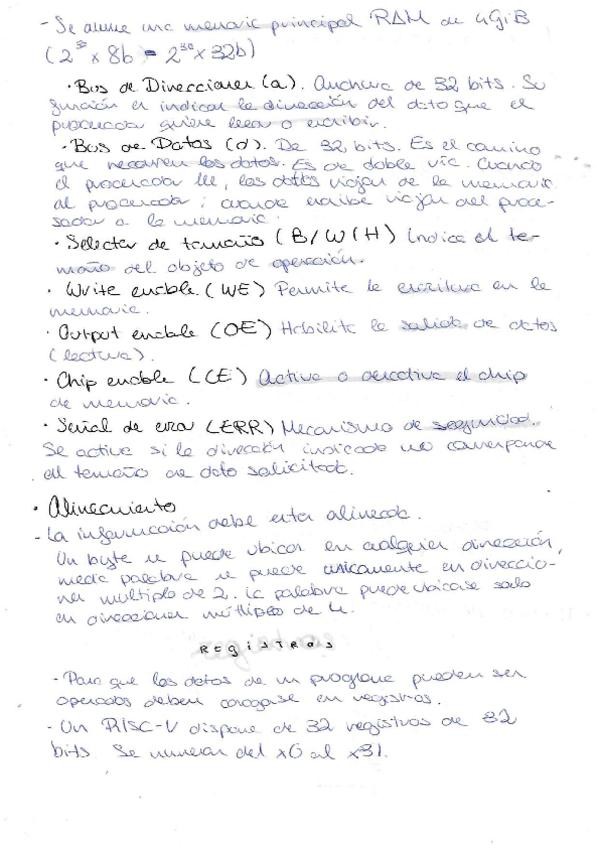 - Se asume una memoria principal RAM de 4GiB
(2^32 x 8b = 2^30 x 32b)
· Bus de Direcciones (a). Anchura de 32 bits. Su
función es indicar la dirección del dato que el
procesador quiere leer o escribir.
· Bus de Datos (d). De 32 bits. Es el camino
que recorren los datos. Es de doble vía. Cuando
el procesador lee, los datos viajan de la memoria
al procesador; cuando escribe viajan del proce-
sador a la memoria.
· Selector de tamaño (B/W/H) Indica el ta-
maño del objeto de operación.
· Write enable (WE) Permite la escritura en la
memoria.
· Output enable (OE) Habilita la salida de datos
(lectura).
· Chip enable (CE) Activa o desactiva el chip
de memoria.
· Señal de error (ERR) Mecanismo de seguridad.
Se activa si la dirección indicada no corresponde
al tamaño de dato solicitado.
· Alineamiento
- La información debe estar alineada.
Un byte se puede ubicar en cualquier dirección,
media palabra se puede únicamente en direccio-
nes múltiplo de 2. La palabra puede ubicarse solo
en direcciones múltiplos de 4.
Registros
- Para que los datos de un programa pueden ser
operados deben cargarse en registros.
- Un RISC-V dispone de 32 registros de 32
bits. Se numeran del x0 al x31.